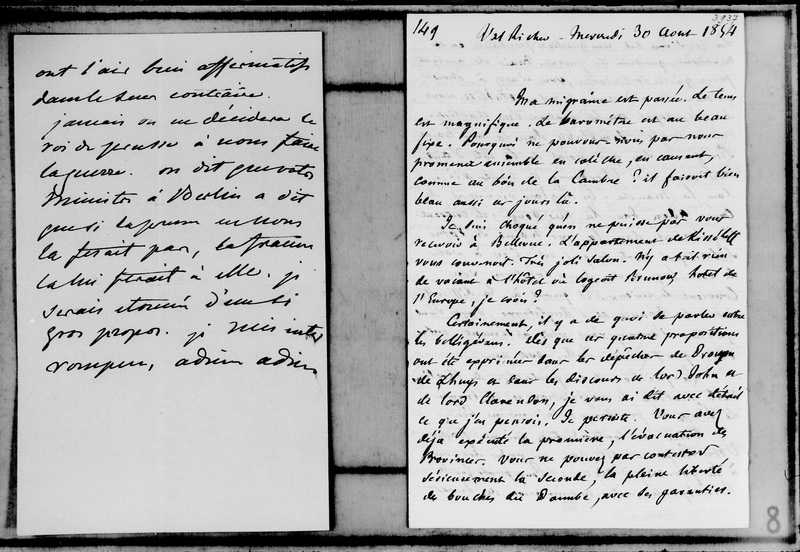 ont l'air bien affirmatifs
dans le sens contraire.
jamais on ne décidera le
roi de prusse à nous faire
la guerre. on dit que votre
ministre à Berlin a dit
que si la prusse ne nous
la ferait pas, la france
la lui ferait à elle. je
serais étonnée d'un si
gros propos. je suis inter
rompue, adieu adieu
3937
149 Val Richer - Mercredi 30 Aout 1854
Ma migraine est passée. Le tems
est magnifique. Le baromètre est au beau
fixe. Pourquoi ne pouvons-nous pas nous
promener ensemble en calèche, en causant,
comme au bois de la Cambre ? il faisoit bien
beau aussi ces jours là.
Je suis choqué qu'on ne puisse pas vous
recevoir à Bellevue. L'appartement de Kisseleff
vous convenoit. Très joli salon. N'y a-t-il rien
de vacant à l'hôtel où logeoit Brunow, hotel de
l'Europe, je crois ?
Certainement, il y a de quoi se parler entre
les belligérans. Tels que ces quatre propositions
ont été exprimées dans les dépêches de Drouyn
de Lhuys et dans les discours de lord John et
de lord Clarendon, je vous ai dit avec détail
ce que j'en pensois. Je persiste. Vous avez
déja exécuté la première, l'évacuation des
Provinces. Vous ne pouvez pas contester
sérieusement la seconde, la pleine liberté
des bouches du Danube, avec des garanties.
8